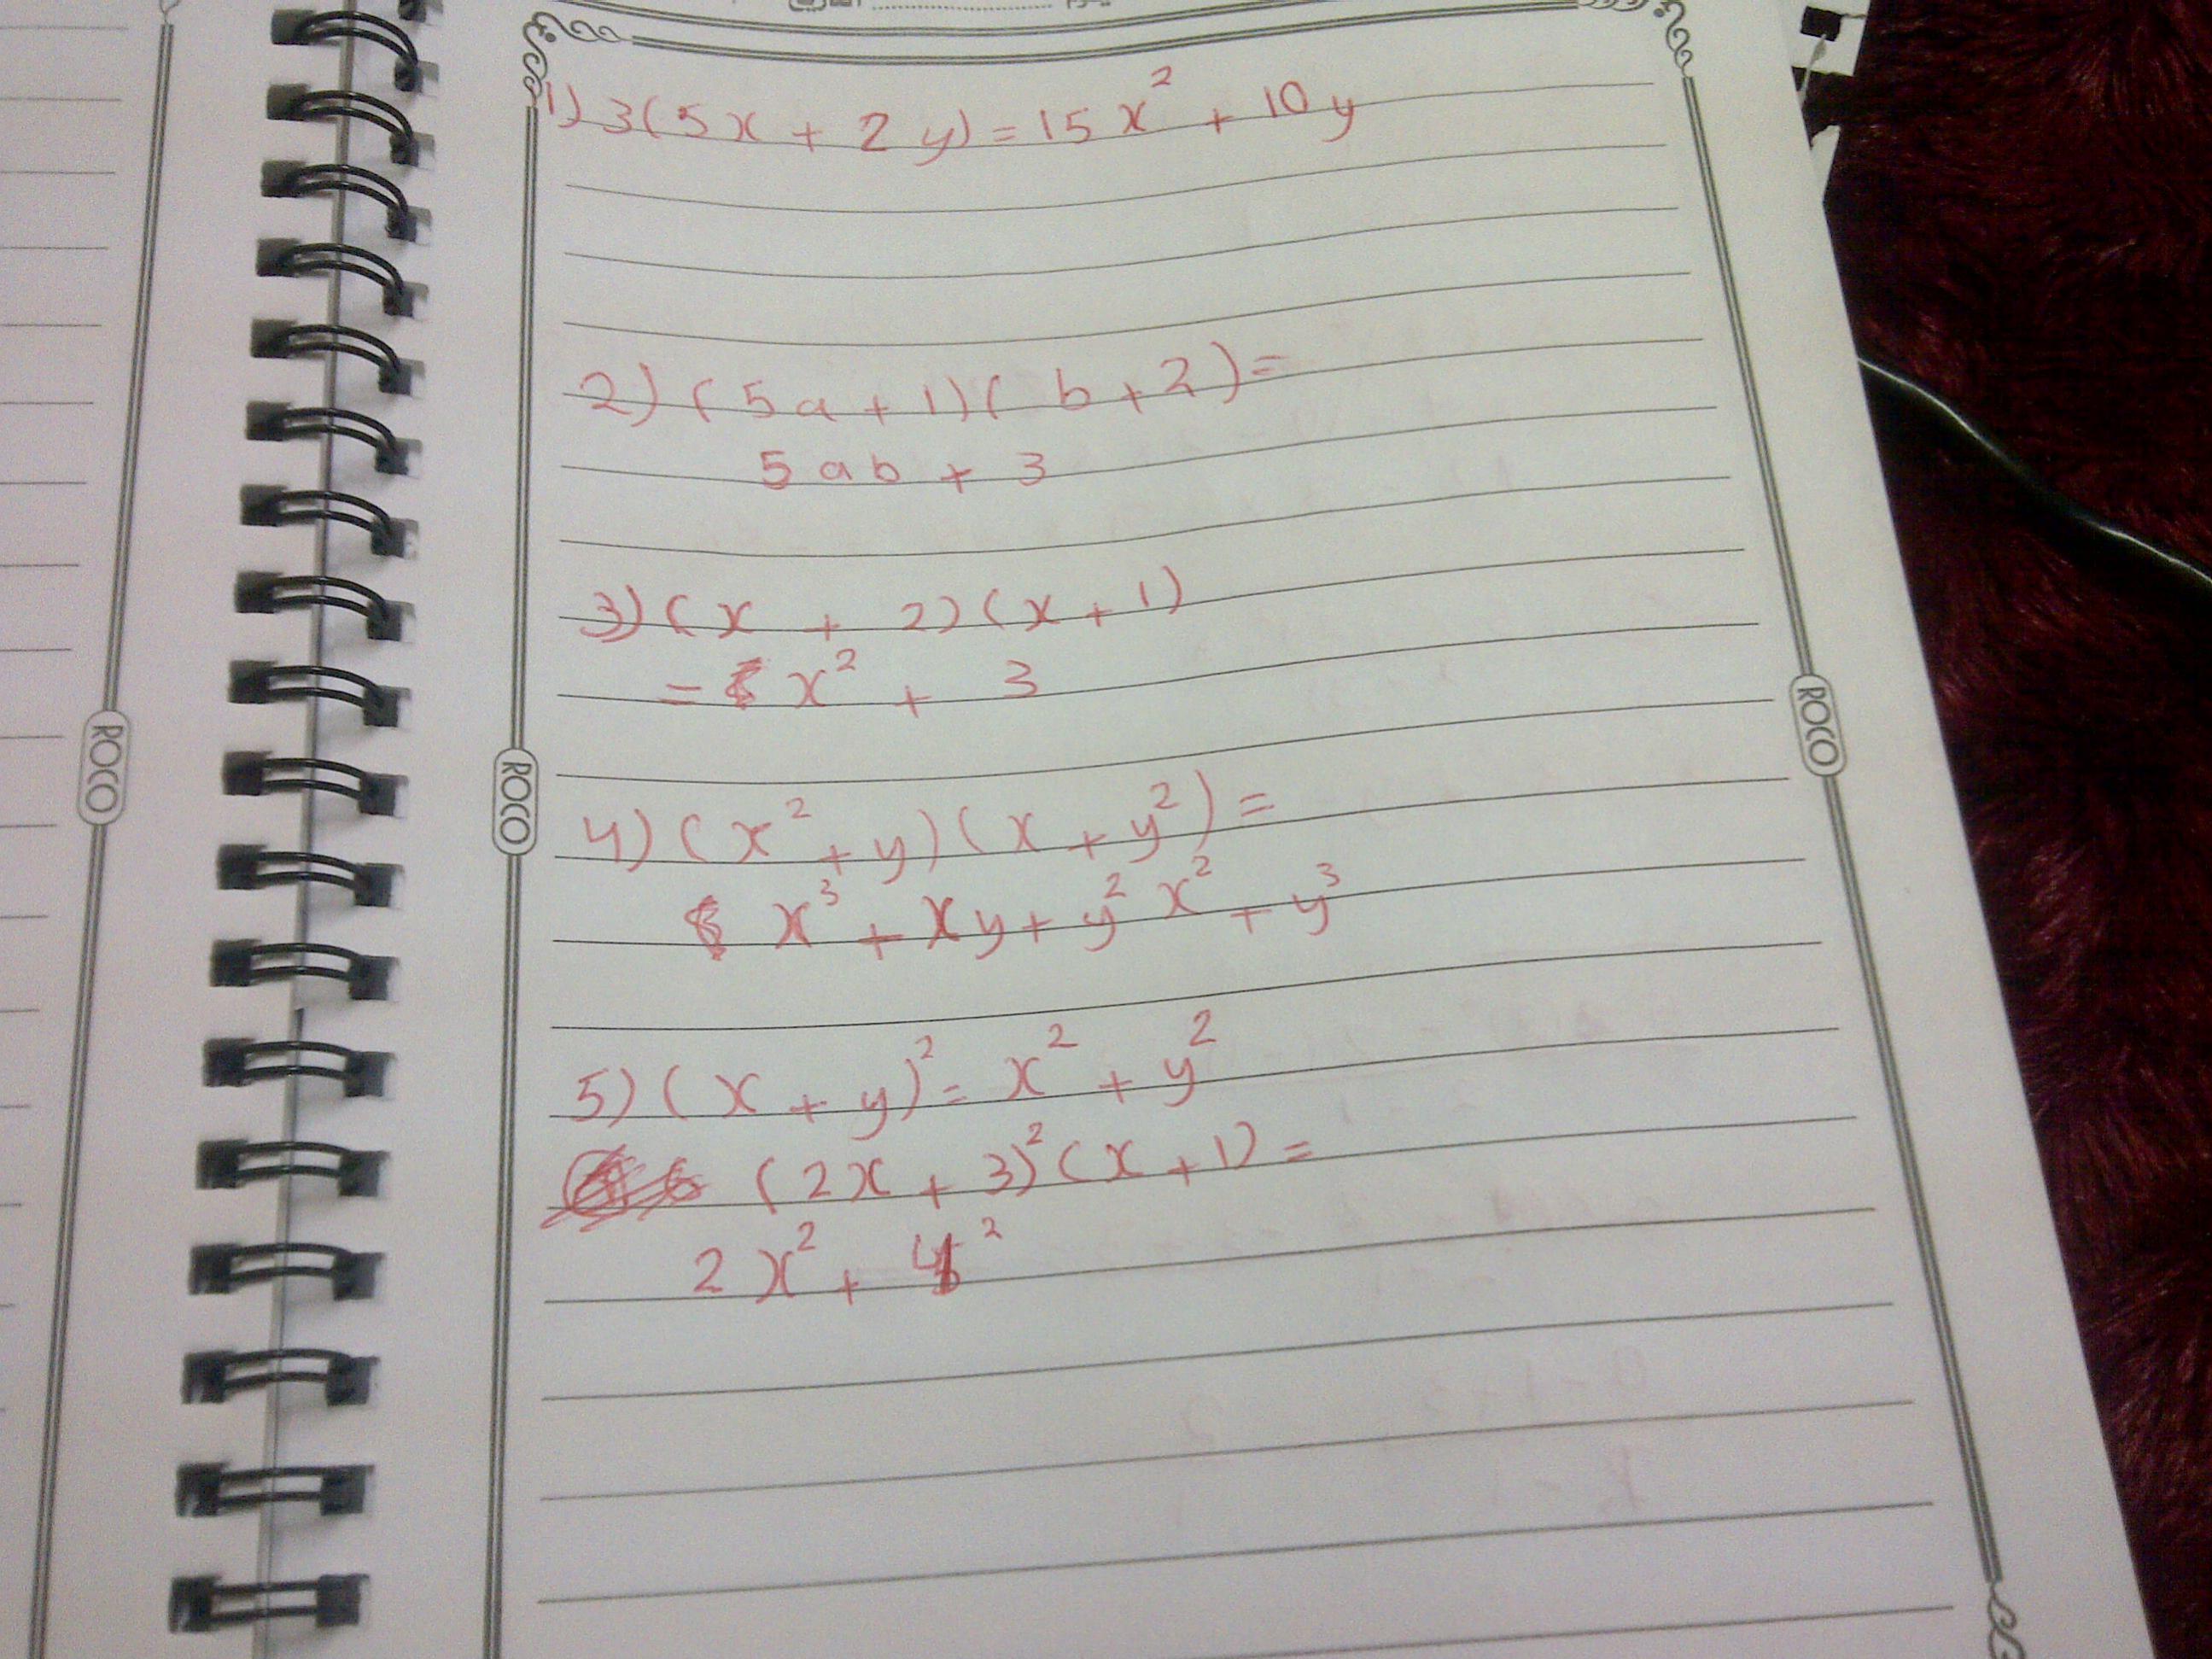 1) 3(5x + 2y) = 15x² + 10y
2) (5a + 1)(b + 2) =
5ab + 3
3) (x + 2)(x + 1)
= x² + 3
4) (x² + y)(x + y²) =
x³ + xy + y²x² + y³
5) (x + y)² = x² + y²
(2x + 3)²(x + 1) =
2x² + 4²
ROCO
ROCO
ROCO